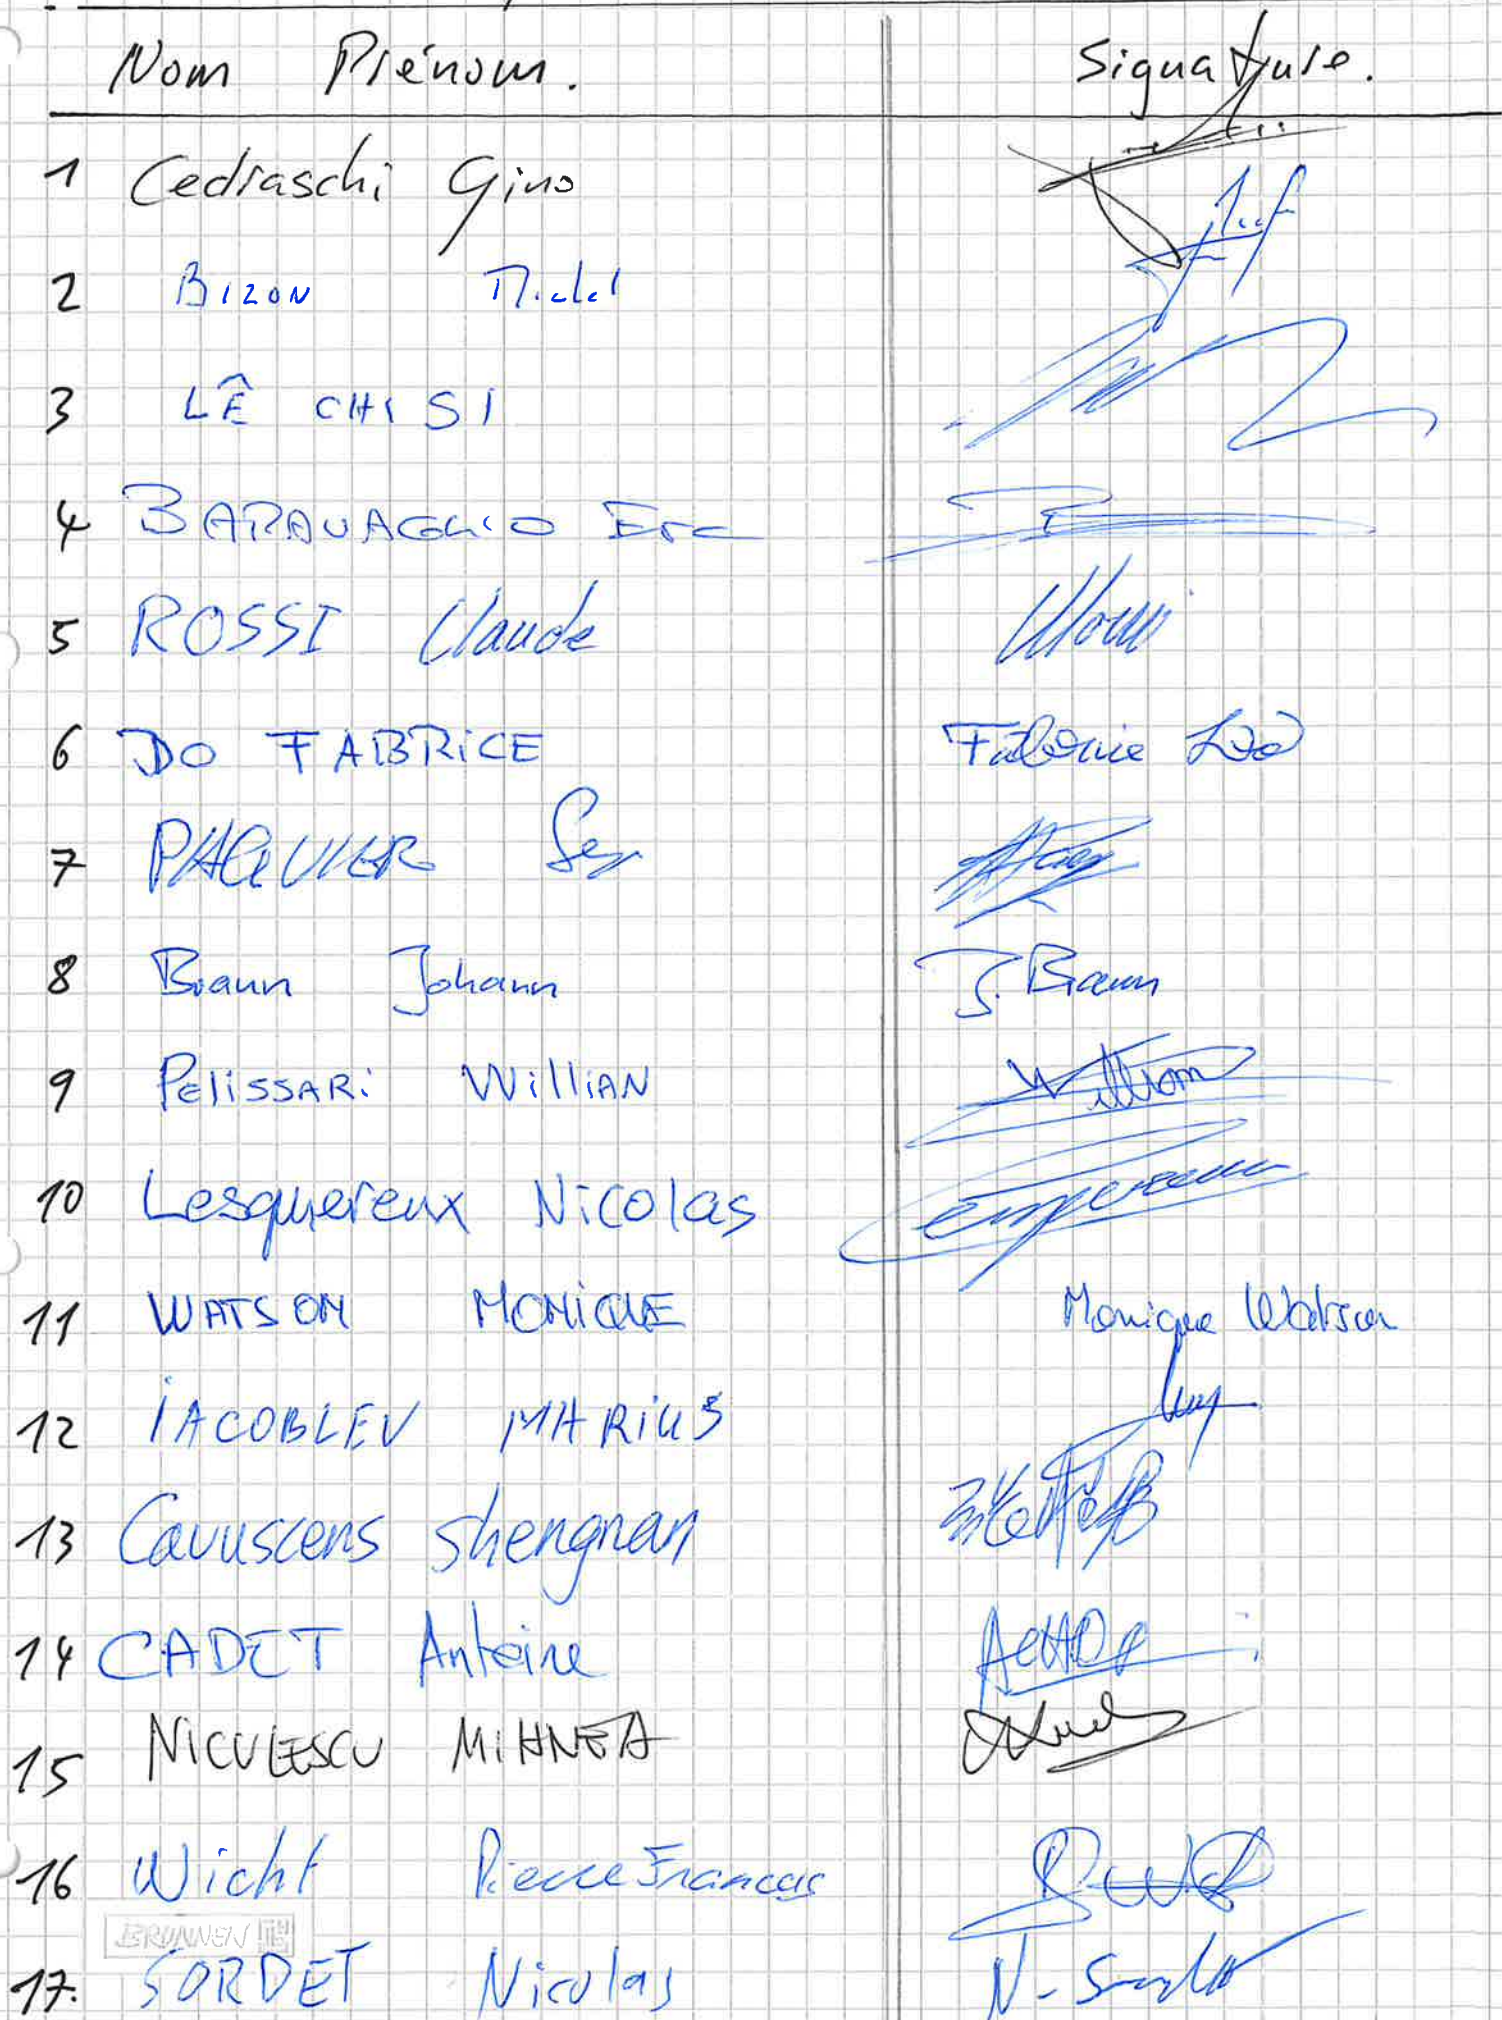 Nom Prénom. Signature.
1 Cedraschi Gino
2 BIZON Michel
3 LÊ CHI SI
4 BARAVAGGIO Eric
5 ROSSI Claude
6 DO FABRICE Fabrice Do
7 PAQUIER
8 Braun Johann J. Braun
9 PELISSARi WilliAN William
10 Lesquereux Nicolas
11 WATSON MONIQUE Monique Watson
12 iACOBLEV MARiUS
13 Cavuscens shengnan
14 CADET Antoine
15 NICULESCU MiHNEA
16 Wicht Pierre Francois
BRUNNEN
17. SORDET Nicolas N. Sordet